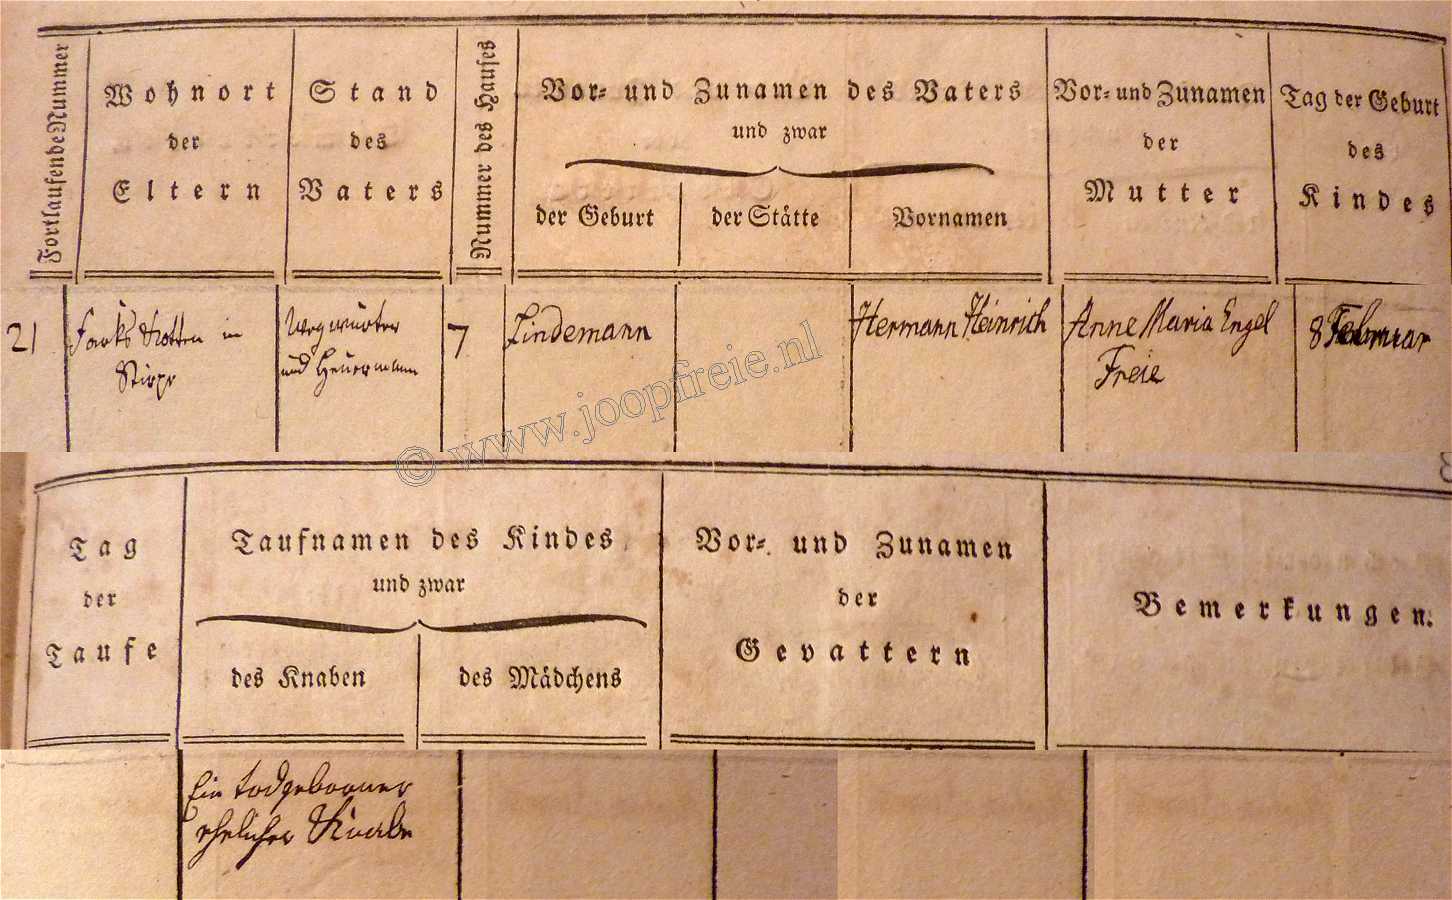 Fortlaufende Nummer
Wohnort
der
Eltern
Stand
des
Vaters
Nummer des Hauses
Vor- und Zunamen des Vaters
und zwar
der Geburt
der Stätte
Vornamen
Vor- und Zunamen
der
Mutter
Tag der Geburt
des
Kindes
21
Kotten in
Stirpe
und Heuermann
7
Lindemann
Hermann Heinrich
Anne Maria Engel
Freie
8 Februar
© www.joopfreie.nl
Tag
der
Taufe
Taufnamen des Kindes
und zwar
des Knaben
des Mädchens
Vor- und Zunamen
der
Gevattern
Bemerkungen.
Ein todgeborner
ehelicher Knabe